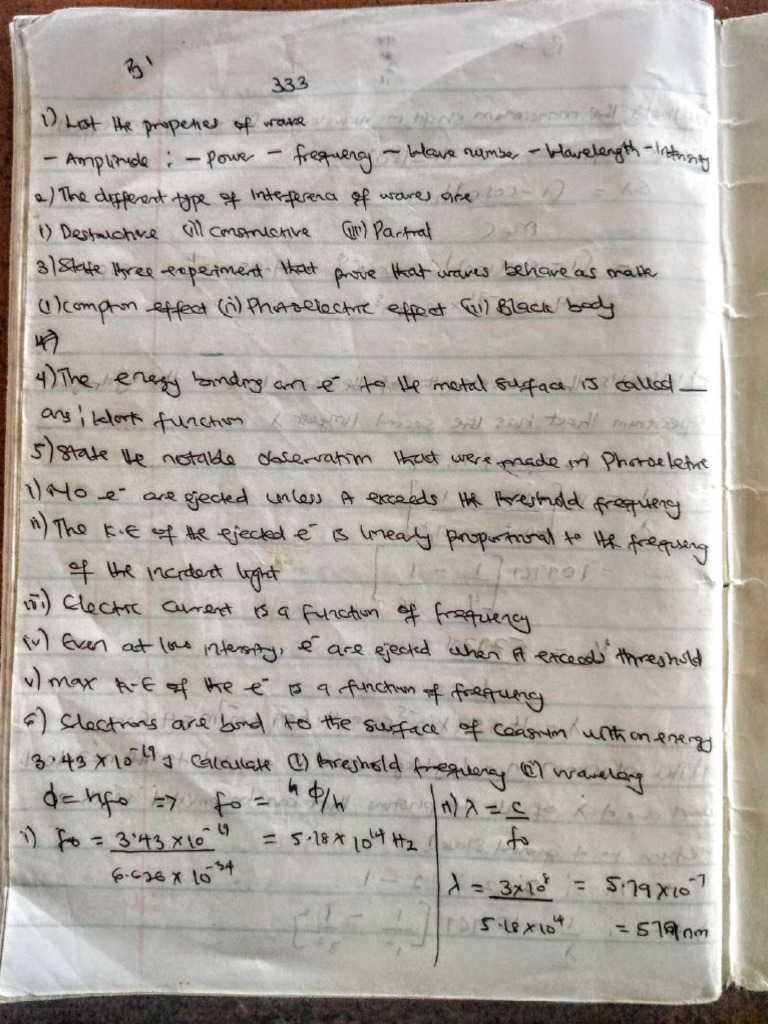 333
1) List the properties of wave
- Amplitude : - Power - frequency - Wave number - Wavelength - Intensity
2) The different type of Interference of waves are
i) Destructive (ii) Constructive (iii) Partial
3) State three experiment that prove that waves behave as matter
(i) Compton effect (ii) Photoelectric effect (iii) Black body
4)
4) The energy binding an e⁻ to the metal surface is called __
ans; Work function
5) State the notable observation that were made in Photoeletric
i) No e⁻ are ejected unless it exceeds the threshold frequency
ii) The K.E of the ejected e⁻ is linearly proportional to the frequency
of the incident light
iii) Electric current is a function of frequency
iv) Even at low intensity, e⁻ are ejected when it exceeds threshold
v) max K.E of the e⁻ is a function of frequency
6) Electrons are bond to the surface of ceasium with an energy
3.43 x 10⁻¹⁹ J Calculate (i) threshold frequency (ii) waveleng
ϕ = hfo => fo = ϕ/h
i) fo = 3.43 x 10⁻¹⁹ / 6.626 x 10⁻³⁴ = 5.18 x 10¹⁴ Hz
ii) λ = c / fo
λ = 3x10⁸ / 5.18 x 10¹⁴ = 5.79 x 10⁻⁷
= 579 nm